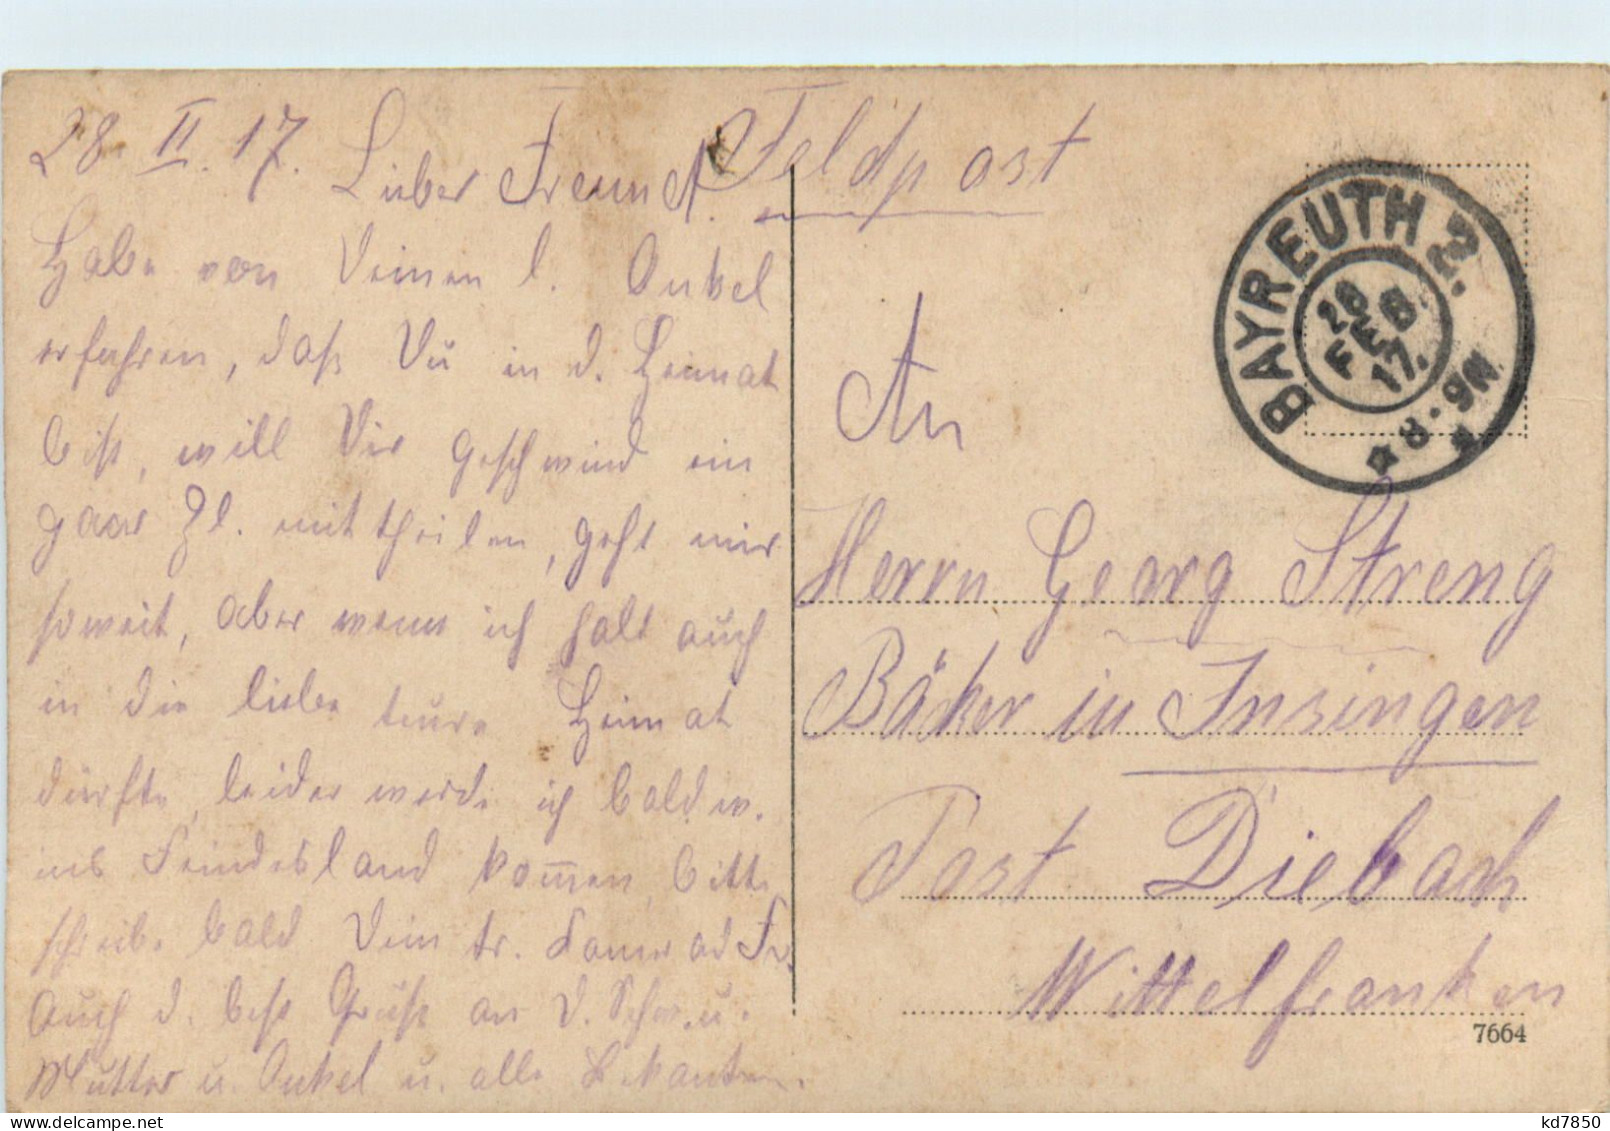 28. II. 17. Lieber Freund!
Habe von Deinen l. Onkel
erfahren, daß Du in d. Heimat
bist, will Dir geschwind ein
paar Zl. mittheilen, geht mir
soweit, aber wenn ich halt auch
in die liebe teure Heimat
dürfte, leider werde ich bald w.
ins Feindesland kom̅en, bitte
schreibe bald Dein tr. Kamerad Fr.
Auch d. beste Grüße an D. Schw. u.
Mutter u. Onkel u. alle Bekannten.
Feldpost
BAYREUTH 2.
28
FEB.
17.
8-9N.
An
Herrn Georg Streng
Bäcker in Insingen
Post Diebach
Mittelfranken
7664
kd7850